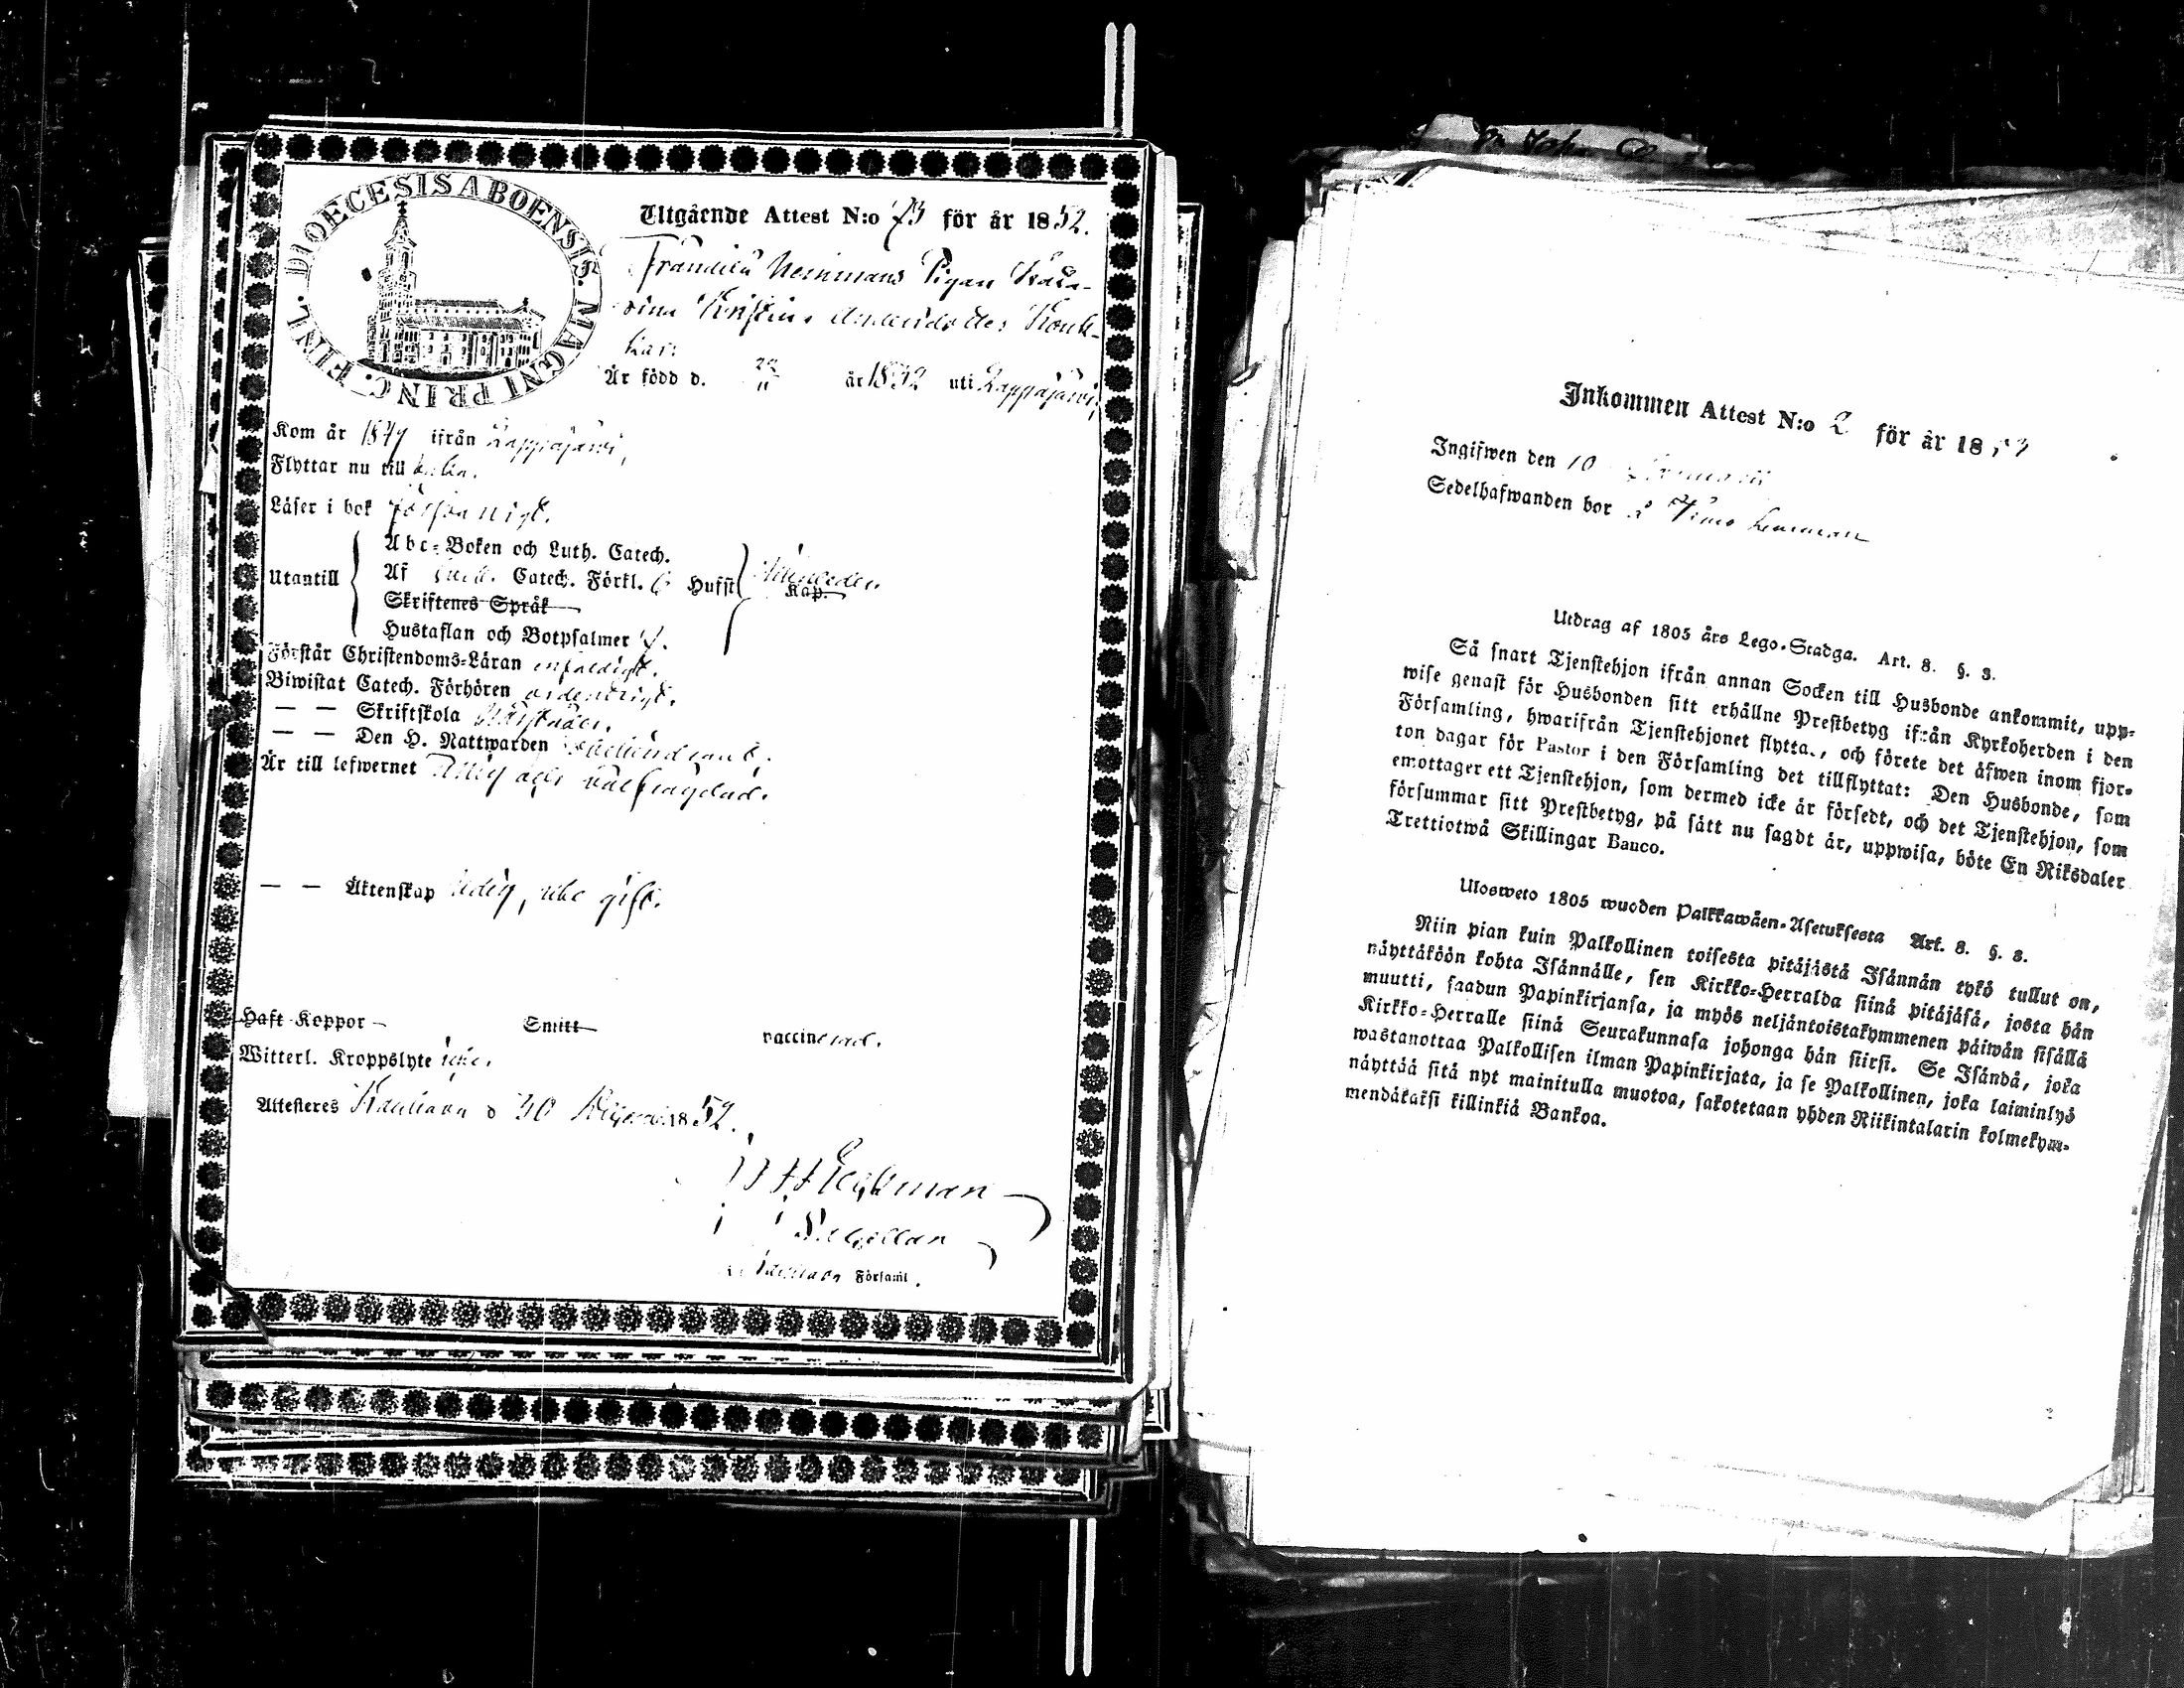 DIOECESIS ABOENSIS. MAGNI PRINC. FINL.
Utgående Attest N:o 73 för år 1852.
Pigan
Är född d. 22/11 år 1832 uti Lappajärvi,
Kom år 1849 ifrån Lappajärvi,
Flyttar nu till
Läser i bok försvarligt.
Utantill
Abc-Boken och Luth. Catech.
Af Catech. Förkl. 6 Hufst
Kap.
Skriftenes Språk
Hustaflan och Botpsalmer
Förstår Christendoms-Läran enfaldigt.
Biwistat Catech. Förhören ordentligt.
— — Skriftskola
— — Den H. Nattwarden
Är till lefwernet välfrägdad.
— — Äktenskap ledig, gift.
Haft Koppor
Smitt
vaccinerad.
Witterl. Kroppslyte icke.
Attesteras Kauhava d 30 1852.
Församl.
Inkommen Attest N:o 2 för år 1853
Ingifwen den 10 Januarii
Sedelhafwanden bor
Utdrag af 1805 års Lego-Stadga. Art. 8. §. 3.
Så snart Tjenstehjon ifrån annan Socken till Husbonde ankommit, upp-
wise genast för Husbonden sitt erhållne Prestbetyg ifrån Kyrkoherden i den
Församling, hwarifrån Tjenstehjonet flytta., och förete det äfwen inom fjor-
ton dagar för Pastor i den Församling det tillflyttat: Den Husbonde, som
emottager ett Tjenstehjon, som dermed icke är försedt, och det Tjenstehjon, som
försummar sitt Prestbetyg, på sätt nu sagdt är, uppwisa, böte En Riksdaler
Trettiotwå Skillingar Banco.
Ulosweto 1805 wuoden Palkkawäen-Asetuksesta Art. 8. §. 3.
Niin pian kuin Palkollinen toisesta pitäjästä Isännän tykö tullut on,
näyttäköön kohta Isännälle, sen Kirkko-Herralda siinä pitäjäsä, josta hän
muutti, saadun Papinkirjansa, ja myös neljäntoistakymmenen päiwän sisällä
Kirkko-Herralle siinä Seurakunnasa johonga hän siirsi. Se Isändä, joka
wastanottaa Palkollisen ilman Papinkirjata, ja se Palkollinen, joka laiminlyö
näyttää sitä nyt mainitulla muotoa, sakotetaan yhden Riikintalarin kolmekym-
mendäkaksi killinkiä Bankoa.